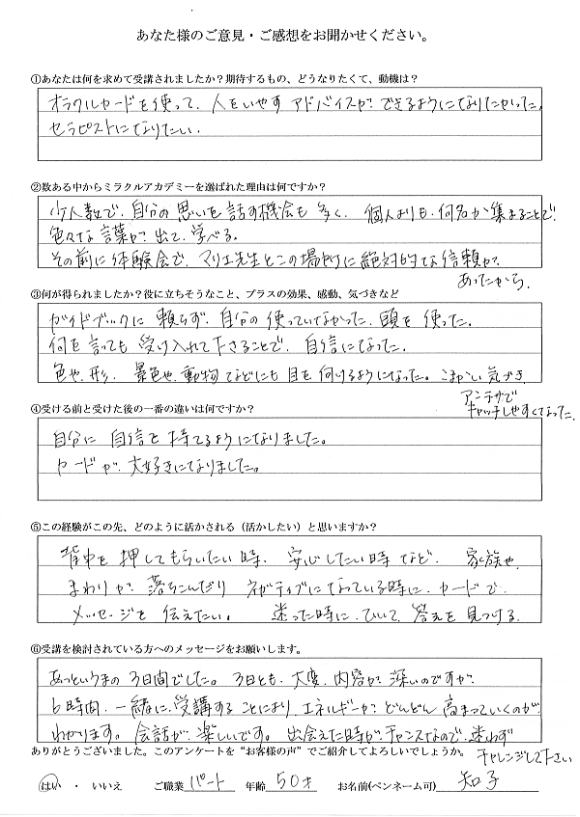 あなた様のご意見・ご感想をお聞かせください。
①あなたは何を求めて受講されましたか？期待するもの、どうなりたくて、動機は？
オラクルカードを使って、人をいやす アドバイスが できるようになりたかった。
セラピストになりたい。
②数ある中からミラクルアカデミーを選ばれた理由は何ですか？
少人数で、自分の思いを話す機会も多く、個人よりも、何名か集まることで
色々な言葉が出て、学べる。
その前に体験会で、マリエ先生とこの場所に絶対的な信頼が、
あったから。
③何が得られましたか？役に立ちそうなこと、プラスの効果、感動、気づきなど
ガイドブックに頼らず、自分の使っていなかった、頭を使った。
何を言っても受け入れて下さることで、自信になった。
色や、形、景色や、動物などにも目を向けるようになった。こまかい気づき、
アンテナで
キャッチしやすくなった。
④受ける前と受けた後の一番の違いは何ですか？
自分に自信を持てるようになりました。
カードが、大好きになりました。
⑤この経験がこの先、どのように活かされる（活かしたい）と思いますか？
背中を押してもらいたい時、安心したい時など、家族や、
まわりが、落ちこんだり ネガティブになっている時に、カードで、
メッセージを伝えたい。 迷った時に、ひいて、答えを見つける。
⑥受講を検討されている方へのメッセージをお願いします。
あっというまの3日間でした。3日とも、大変、内容が深いのですが、
6時間、一緒に、受講することにより、エネルギーが、どんどん高まっていくのが、
わかります。会話が、楽しいです。出会えた時が、チャンスなので、迷わず
チャレンジして下さい
ありがとうございました。このアンケートを“お客様の声”でご紹介してよろしいでしょうか。
はい ・ いいえ ご職業 パート 年齢 50才 お名前(ペンネーム可) 知子